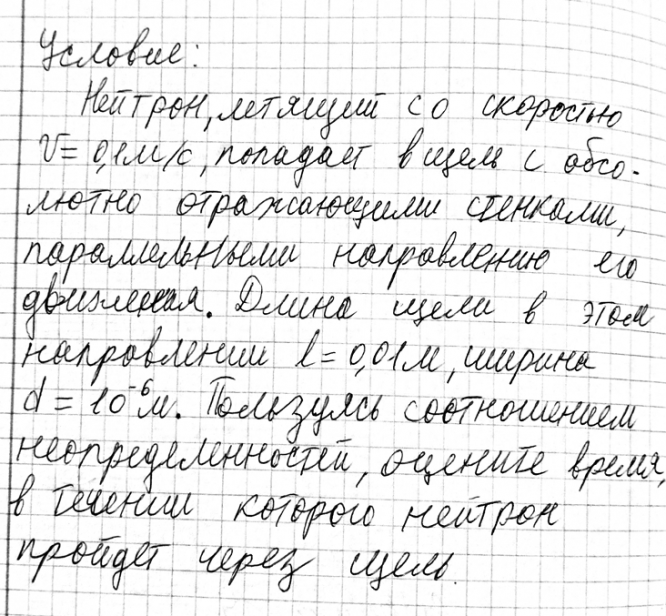 Условие:
Нейтрон, летящий со скоростью
V = 0,1 м/с, попадает в щель с абсо-
лютно отражающими стенками,
параллельными направлению его
движения. Длина щели в этом
направлении l = 0,01 м, ширина
d = 10⁻⁶ м. Пользуясь соотношением
неопределенностей, оцените время,
в течении которого нейтрон
пройдет через щель.